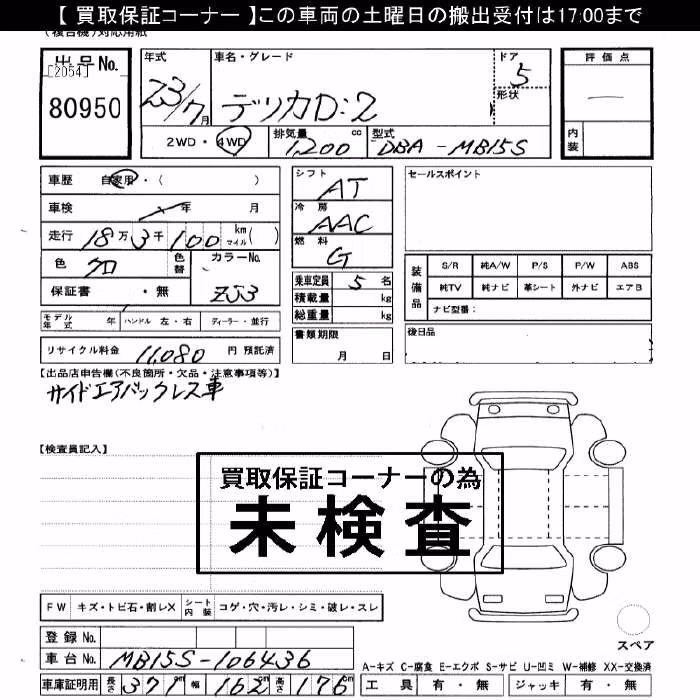 【 買取保証コーナー 】この車両の土曜日の搬出受付は17:00まで
(複合機)対応用紙
出品No.
[2054]
80950
年式
23/7月
車名・グレード
デリカD:2
ドア
5
形状
評価点
内装
2WD・4WD
排気量
1,200 cc
型式
DBA-MB15S
車歴 自家用・( )
車検 年 月
走行 18万3千100 km マイル( )
色 クロ
色替
カラーNo.
ZJ3
保証書 ・無
モデル年式 年 ハンドル 左・右 ディーラー・並行
リサイクル料金 11,080 円 預託済
シフト
AT
冷房
AAC
燃料
G
乗車定員 5 名
積載量 kg
総重量 kg
書類期限
月 日
セールスポイント
装備品
S/R 純A/W P/S P/W ABS
純TV 純ナビ 革シート 外ナビ エアB
ナビ型番:
後日品
【出品店申告欄(不良箇所・欠品・注意事項等)】
サイドエアバックレス車
【検査員記入】
買取保証コーナーの為
未検査
FW キズ・トビ石・割レX シート内装 コゲ・穴・汚レ・シミ・破レ・スレ
登録No.
車台No. MB15S-106436
車庫証明用 長さ 371cm 幅 162cm 高さ 176cm
スペア
A-キズ C-腐食 E-エクボ S-サビ U-凹ミ W-補修 XX-交換済
工具 有・無 ジャッキ 有・無